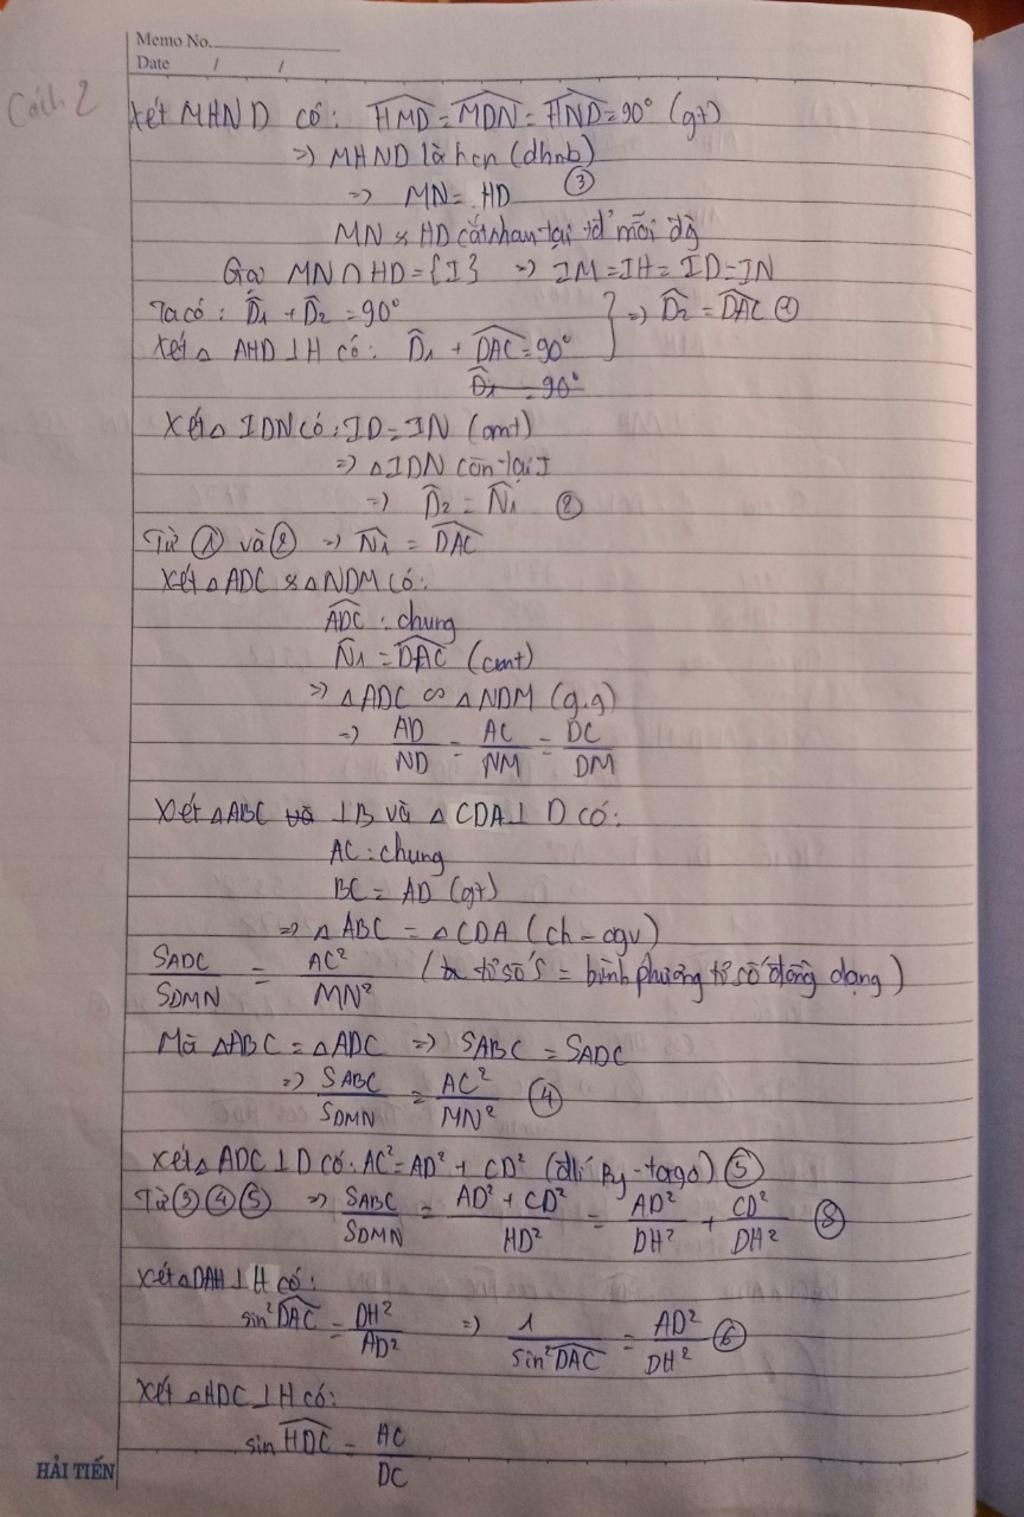 Memo No.
Date / /
Cách 2
Xét MHND có: HMD = MDN = HND = 90° (gt)
=> MHND là hcn (dhnb)
=> MN = HD ③
MN & HD cắt nhau tại tđ mỗi đg
Gọi MN ∩ HD = {I} => IM = IH = ID = IN
Ta có: D̂1 + D̂2 = 90°
Xét △ AHD ⊥ H có: D̂1 + DAC = 90° } => D̂2 = DAC ①
D̂1 = 90°
Xét △ IDN có: ID = IN (cmt)
=> △ IDN cân tại I
=> D̂2 = N̂1 ②
Từ ① và ② => N̂1 = DAC
Xét △ ADC & △ NDM có:
ADC : chung
N̂1 = DAC (cmt)
=> △ ADC ∽ △ NDM (g.g)
=> AD/ND = AC/NM = DC/DM
Xét △ ABC và ⊥ B và △ CDA ⊥ D có:
AC : chung
BC = AD (gt)
=> △ ABC = △ CDA (ch - cgv)
SADC/SDMN = AC²/MN² (tỉ số S = bình phương tỉ số đồng dạng)
Mà △ ABC = △ ADC => SABC = SADC
=> SABC/SDMN = AC²/MN² ④
Xét △ ADC ⊥ D có: AC² = AD² + CD² (đlí Py-ta-go) ⑤
Từ ③ ④ ⑤ => SABC/SDMN = AD² + CD²/HD² = AD²/DH² + CD²/DH² ⑧
Xét △ DAH ⊥ H có:
sin² DAC = DH²/AD² => 1/sin² DAC = AD²/DH² ⑥
Xét △ HDC ⊥ H có:
sin HDC = AC/DC
HẢI TIẾN